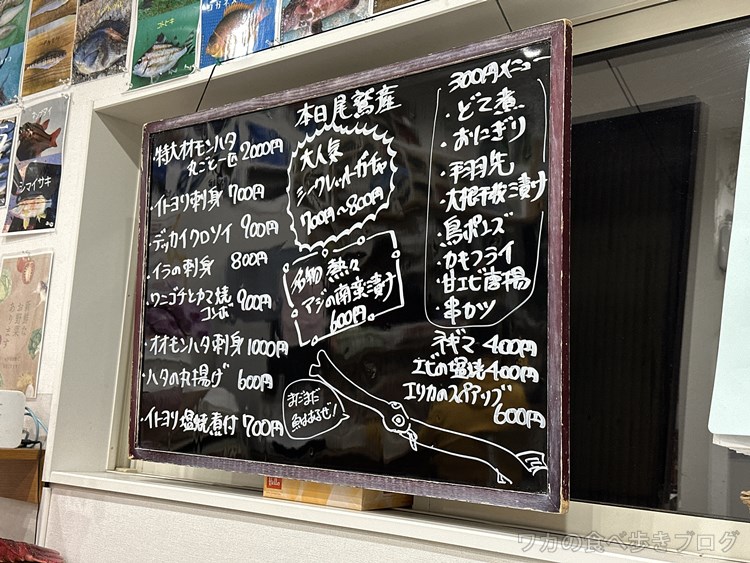 本日尾鷲産
・特大オオモンハタ
丸ごと一匹 2000円
・イトヨリ刺身 700円
・デッカイクロソイ 900円
・イラの刺身 800円
・ワニゴチとカマ焼
コンボ 900円
・オオモンハタ刺身 1000円
・ハタの丸揚げ 600円
・イトヨリ塩焼煮付 700円
大人気
シークレットガチャ
700円〜800円
名物 熱々
アジの南蛮漬け
600円
まだまだ
魚はあるぜ!
300円メニュー
・どて煮
・おにぎり
・手羽先
・大根千枚漬け
・鳥ポンズ
・カキフライ
・甘エビ唐揚
・串カツ
ネギマ 400円
エビの塩焼 400円
600円
シマイサキ
ワカの食べ歩きブログ